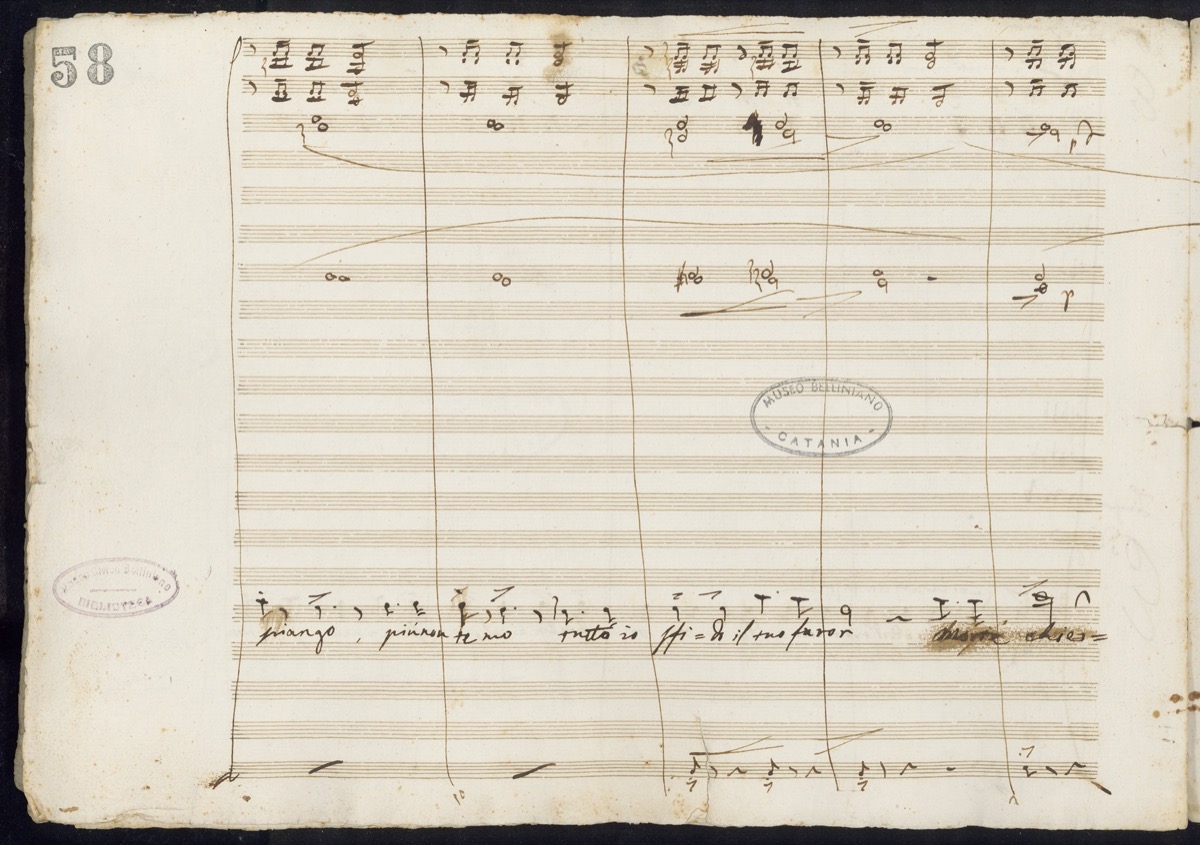 58
MUSEO BELLINIANO
- CATANIA -
BIBLIOTECA
piango, più non temo tutto io sfi=do il tuo furor Morte chies=